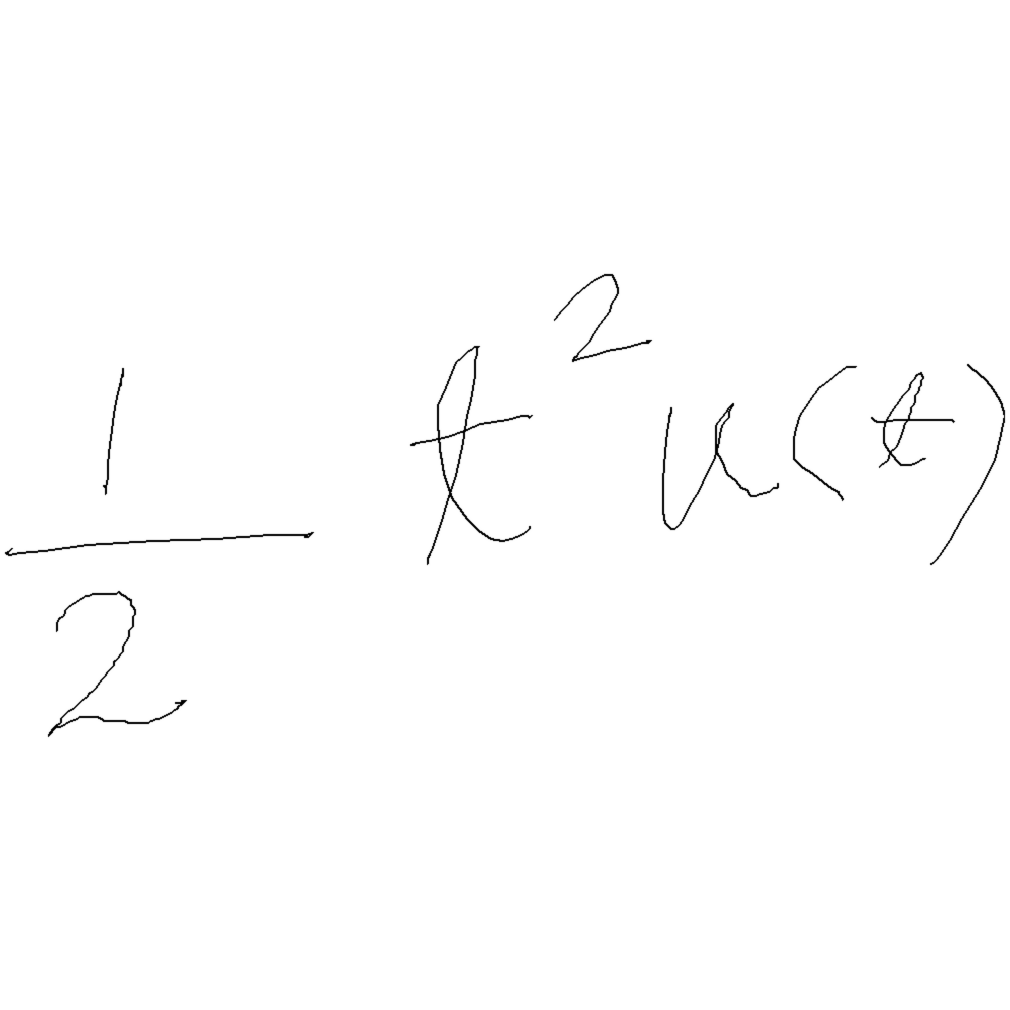 \frac{1}{2} t^2 u(t)